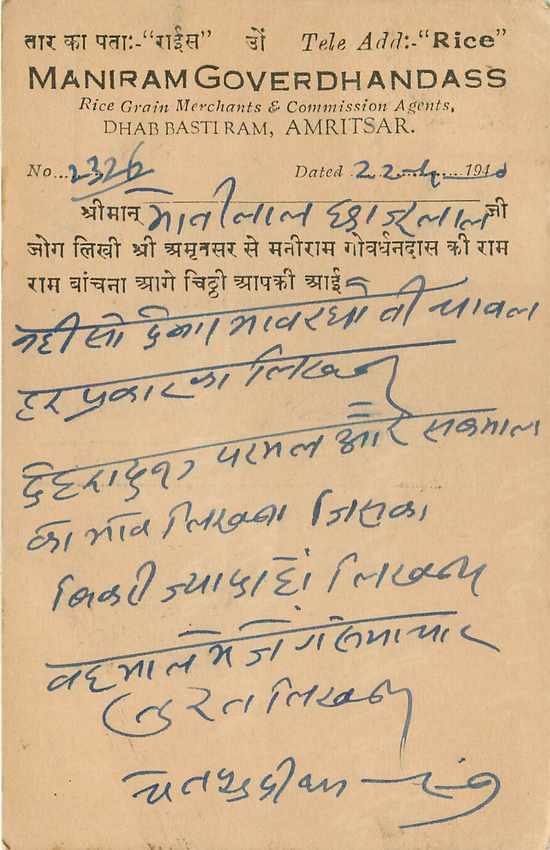 तार का पता:-"राईस" ओं Tele Add:-"Rice"
MANIRAM GOVERDHANDASS
Rice Grain Merchants & Commission Agents,
DHAB BASTI RAM, AMRITSAR.
No...2326 Dated 22 194
श्रीमान् मोतीलाल जी
जोग लिखी श्री अमृतसर से मनीराम गोवर्धनदास की राम
राम बांचना आगे चिठ्ठी आपकी आई
चावल
हर प्रकार का लिखना
देहरादुन परमल और
का भाव लिखना जिसका
बिकरी ज्यादा हो लिखना
वह माल समाचार
तुरत लिखना